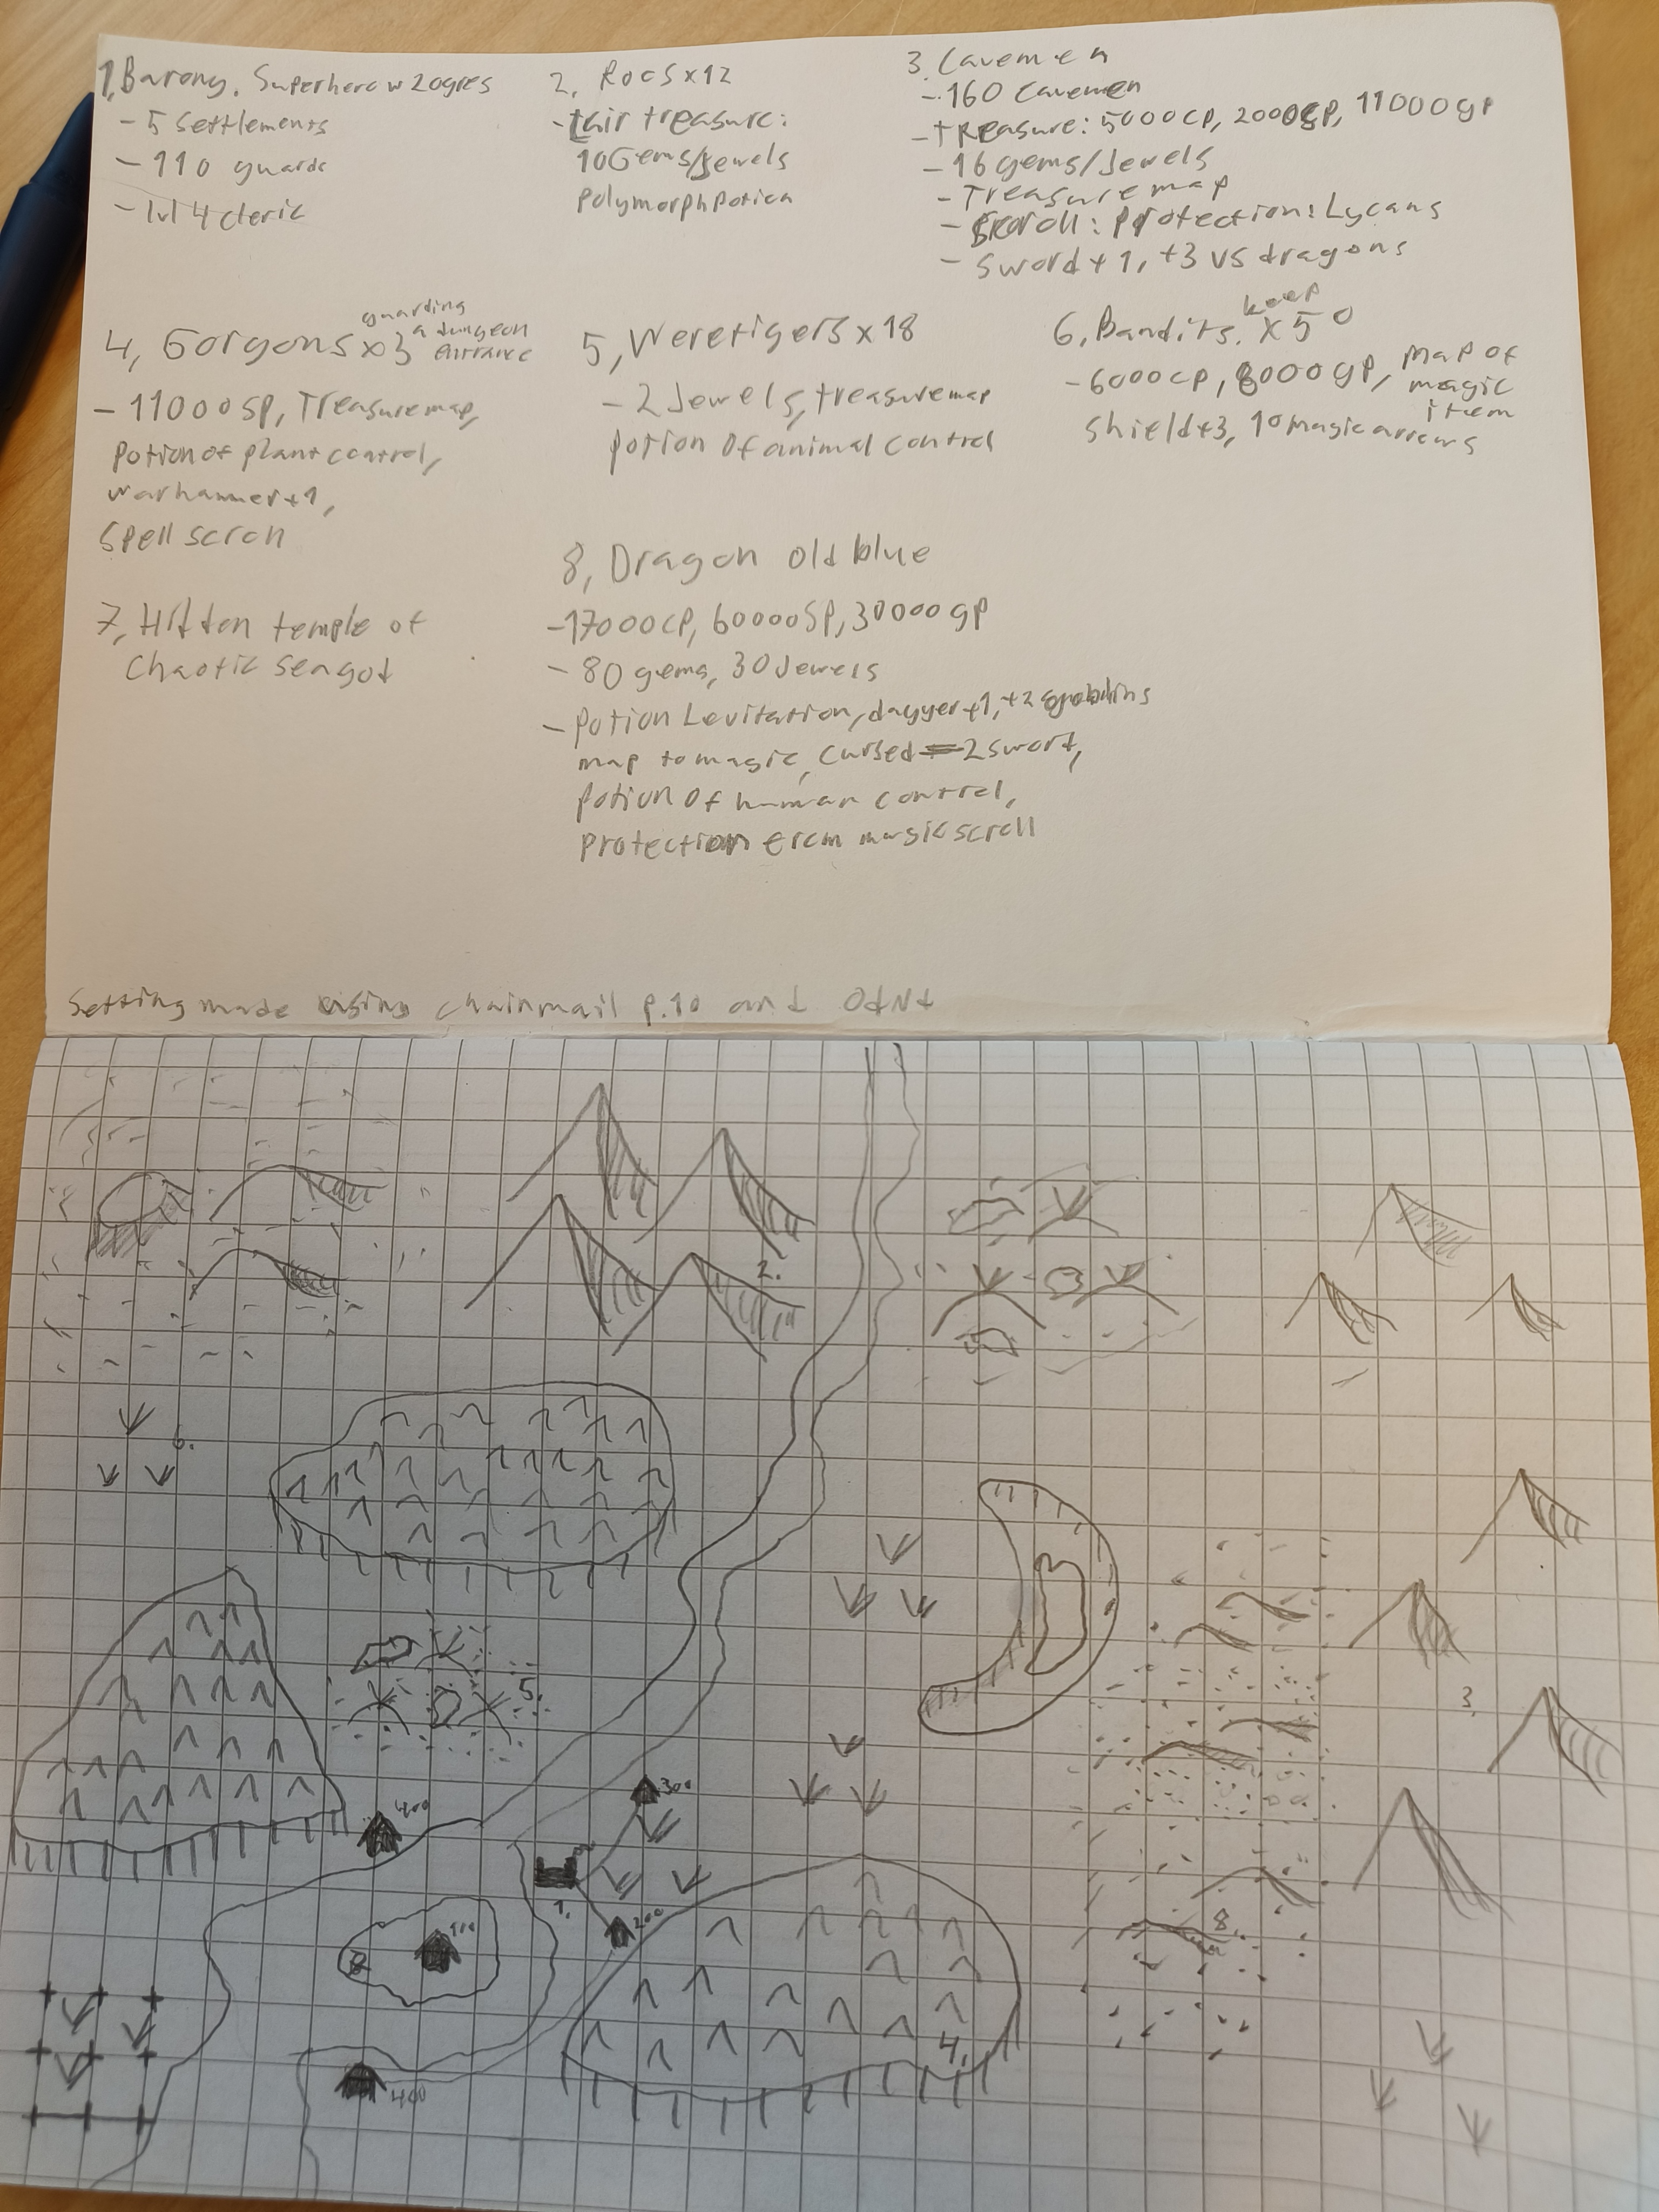 1, Barony. Superhero w 2 ogres
- 5 Settlements
- 110 guards
- lvl 4 cleric
2, Rocs x12
- Lair treasure:
10 Gems/Jewels
Polymorph Potion
3. Cavemen
- 160 cavemen
- Treasure: 5000cp, 2000SP, 11000gp
- 16 gems/Jewels
- Treasure map
- Scroll: Protection: Lycans
- Sword +1, +3 vs dragons
4, Gorgons x3 guarding a dungeon Entrance
- 11000 SP, Treasure map,
Potion of plant control,
warhammer +1,
Spell scroll
5, Weretigers x 18
- 2 Jewels, treasure map
potion of animal control
6, Bandits. keep x50
- 6000cp, 8000gp, map of magic item
shield +3, 10 magic arrows
7, Hidden temple of
Chaotic Seagod
8, Dragon old blue
- 17000cp, 60000SP, 30000gp
- 80 gems, 30 Jewels
- Potion Levitation, dagger +1, +2 goblins
map to magic, cursed -2 sword,
potion of human control,
protection from magic scroll
Setting made using chainmail p.10 and OdNd
2.
6.
5.
3.
400
300
1.
200
8.
4.
400